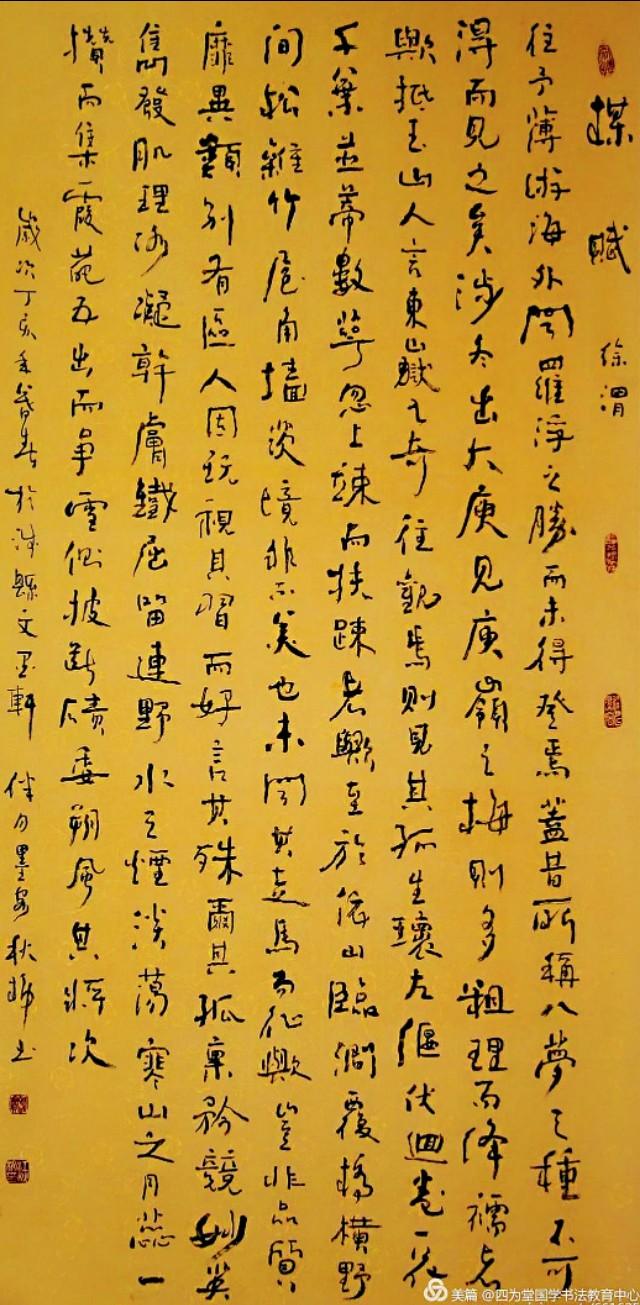 楳賦 徐渭
往予薄游海外聞羅浮之勝而未得登焉蓋昔所稱入夢之種不可
得而見之矣涉冬出大庾見庾嶺之梅則多粗理而降襦者
歟抵玉山人言東山嶽之奇往觀焉則見其孤生瓌 偃伏迴卷一花
千葉並蒂數萼忽上竦而扶疎者歟至於依山臨澗覆橋橫野
間松雜竹 角墻 境非不美也未聞其走馬而 歟豈非品質
靡異類別有區人因玩視其習而好言其殊爾其孤稟矜競妙英
雋發肌理冰凝幹膚鐵屈留連野水之煙淡蕩寒山之月蕊一
攢而集霞葩五出而爭雪傍披斷磧委朔風其將次
歲次丁亥年暮春於涉縣文墨軒 伴月墨客秋 書
美篇 @四为堂国学书法教育中心